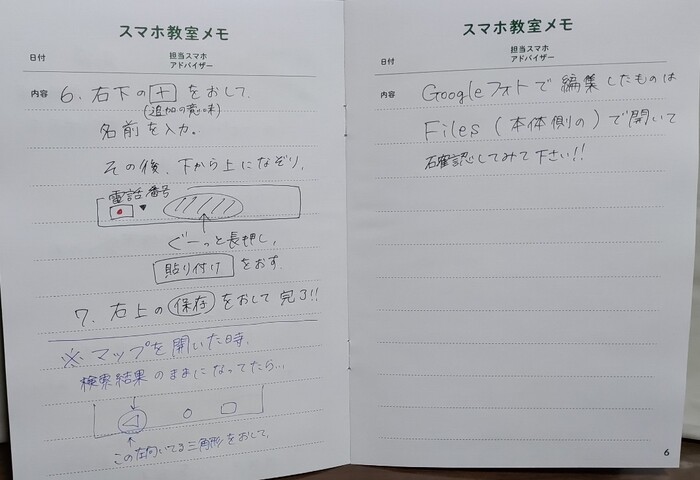 スマホ教室メモ
日付
担当スマホ
アドバイザー
内容
6、右下の+をおして、
(追加の意味)
名前を入力。
その後、下から上になぞり、
電話番号
ぐーっと長押し、
貼り付けをおす
7、右上の保存をおして完了!!
※マップを開いた時、
検索結果のままになってたら…
この左向いてる三角形をおして、
スマホ教室メモ
日付
担当スマホ
アドバイザー
内容
Googleフォトで編集したものは
Files(本体側の)で開いて
確認してみて下さい!!
6